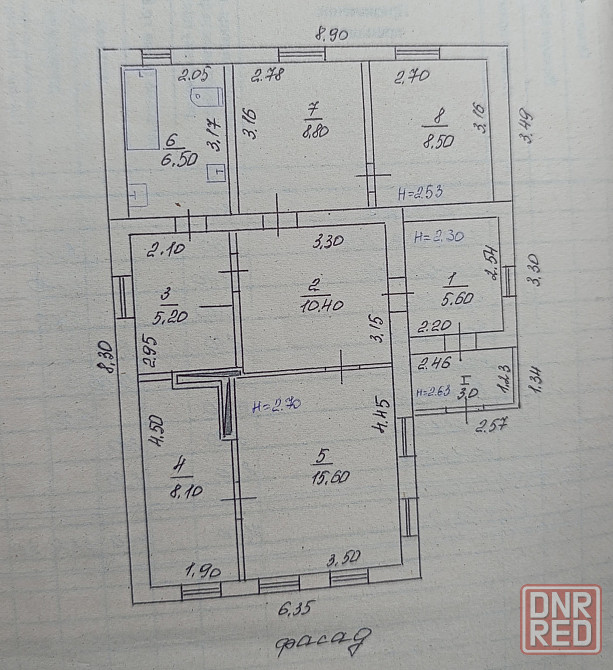 8.90
2.05
2.78
2.70
6
6.50
3,17
3,16
7
8.80
8
8.50
3,16
3,49
H=2.53
2.10
3,30
H=2.30
2.54
3,30
3
5.20
2
10.40
1
5.60
2.20
8,30
2.95
3,15
2.46
H=2.63
I
3,0
1.23
1,34
2.57
H=2.70
4.50
4.45
4
8.10
5
15.60
1.90
3.50
6,35
фасад
DNR
RED